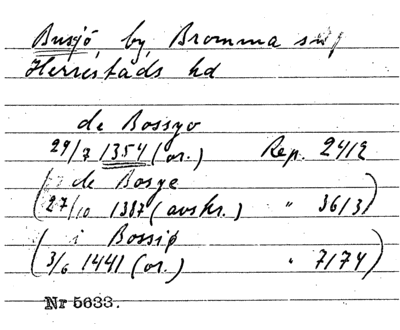 Busjö, by, Bromma sn
Herrestads hd
de Bossyo
29/7 1354 (or.) Rep. 2412
( de Bosye
27/10 1387 (avskr.) " 3613)
( i Bossiø
3/6 1441 (or.) " 7174)
Nr 5633.